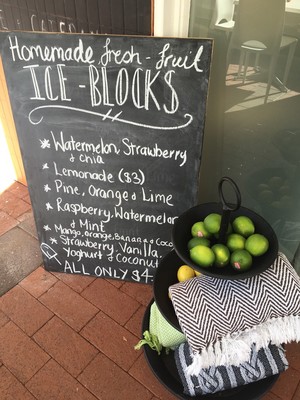 Homemade fresh-fruit
ICE-BLOCKS
* Watermelon, Strawberry
& chia
* Lemonade ($3)
* Pine, Orange & Lime
* Raspberry, Watermelon
& Mint
* Mango, orange, Banana & Coco
* Strawberry, Vanilla,
Yoghurt & Coconut
ALL ONLY $4